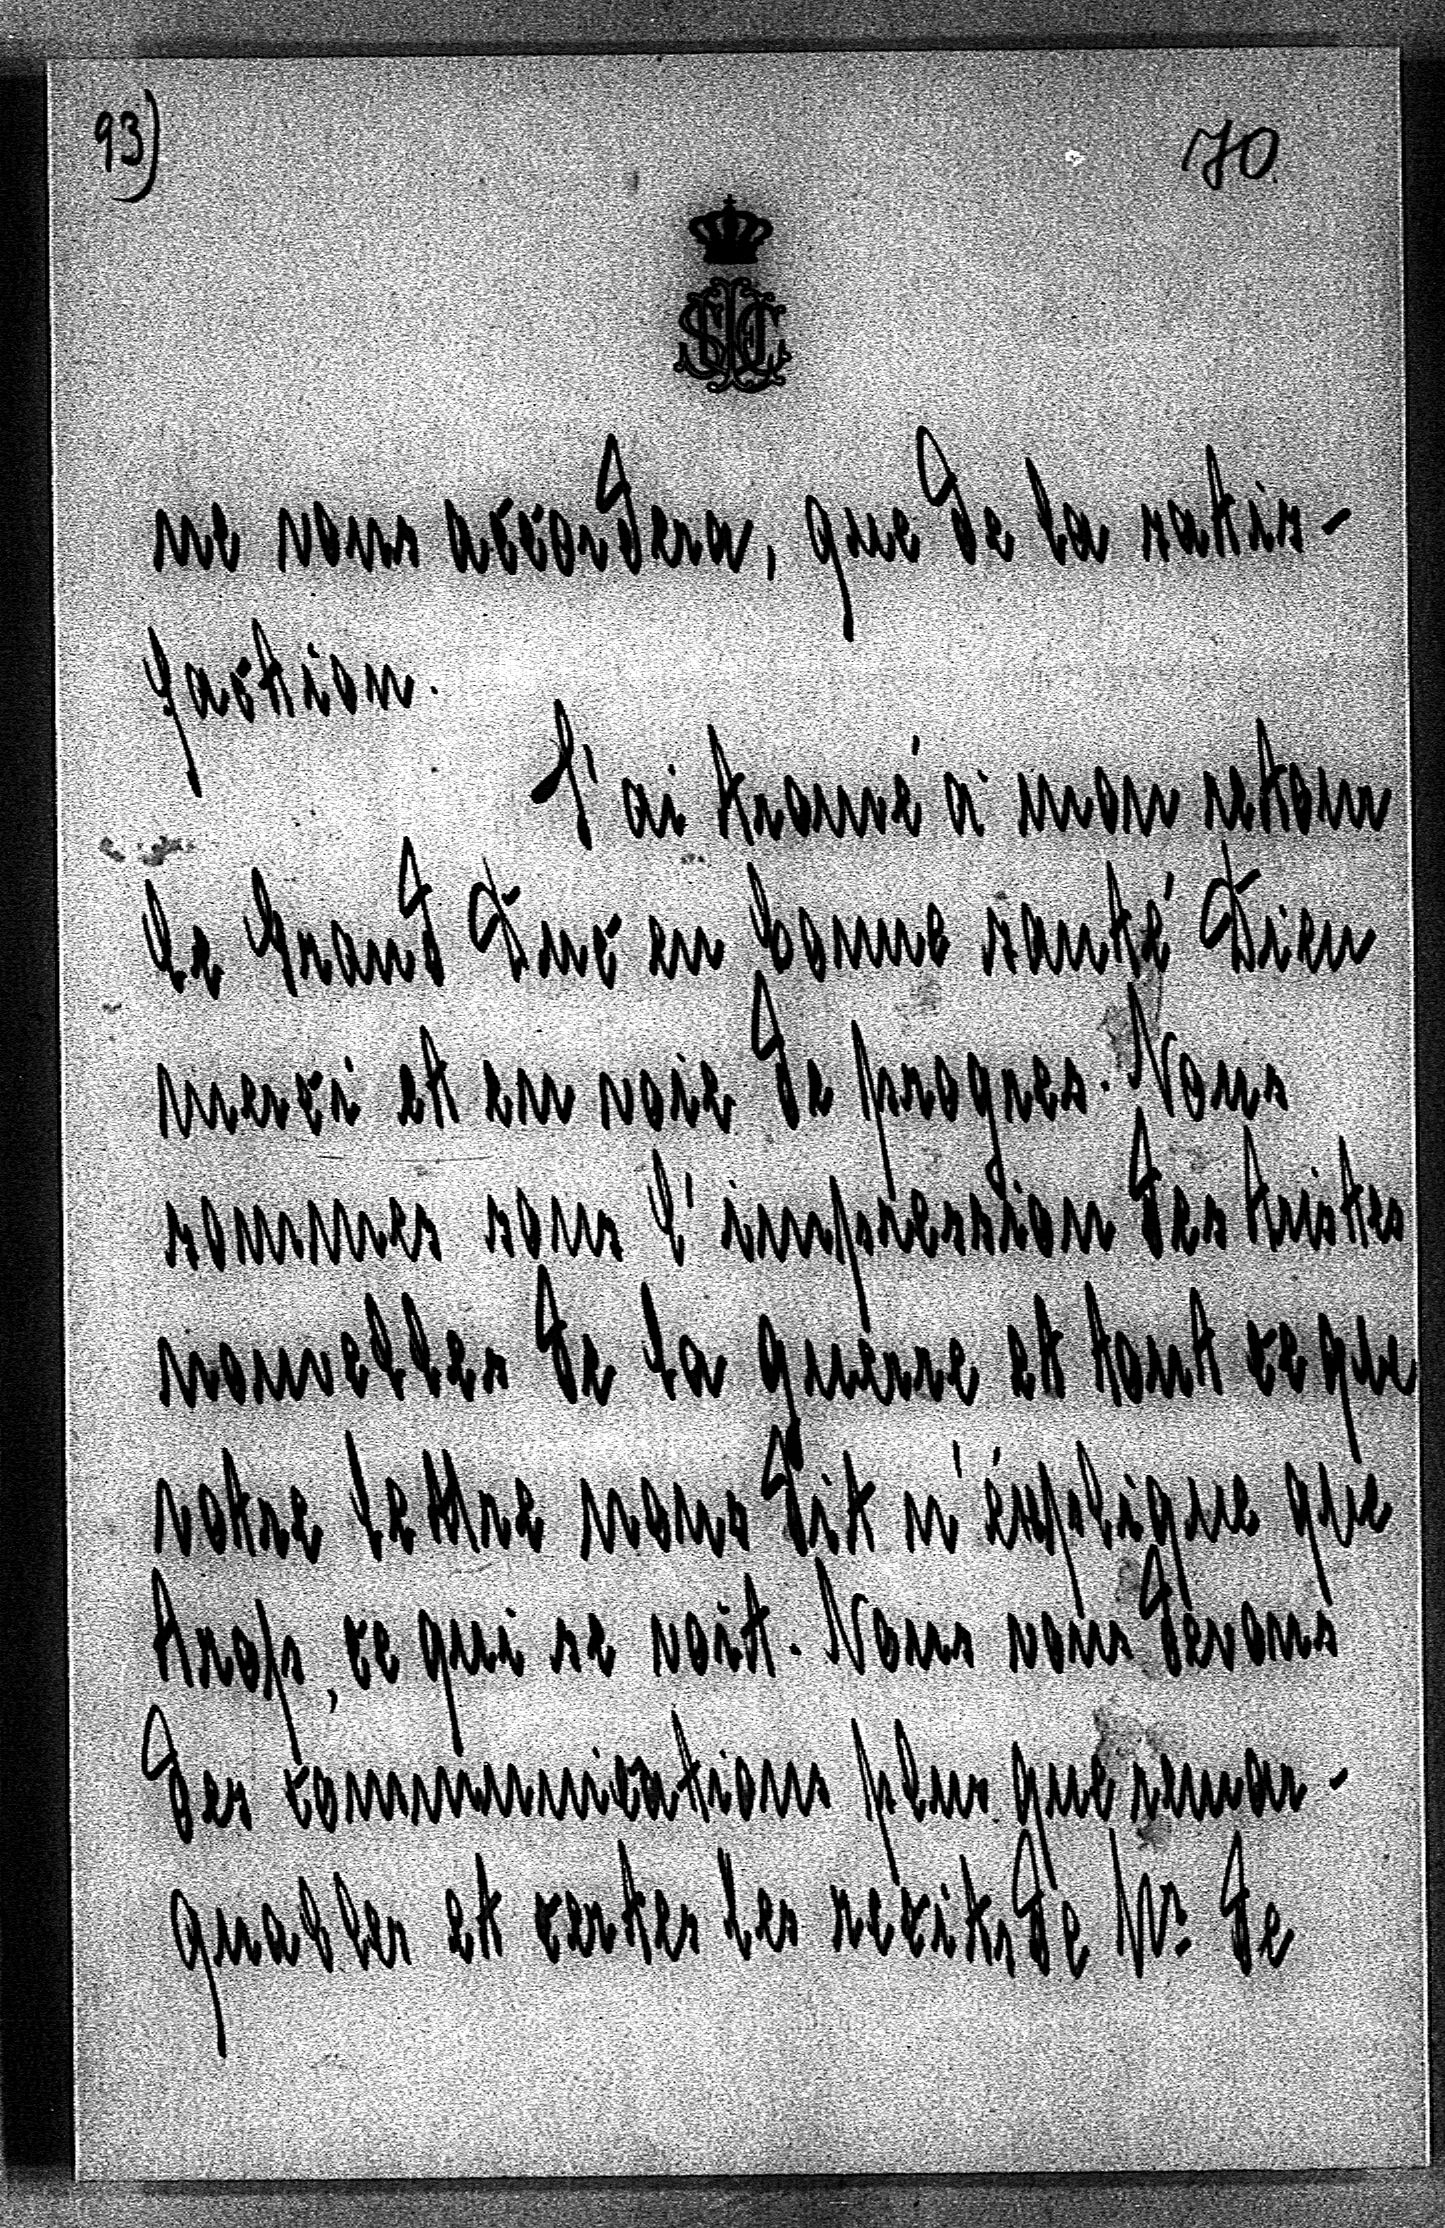 93)
70.
ne vous accordera, que de la satis-
faction.
J'ai trouvé à mon retour
le Grand Duc en bonne santé Dieu
merci et en voie de progres. Nous
sommes sous l'impression des tristes
nouvelles de la guerre et tout ce que
votre lettre nous dit n'éxplique que
trop, ce qui se voit. Nous vous devons
des communications plus que remar-
quables et certes les recits de Mr. de